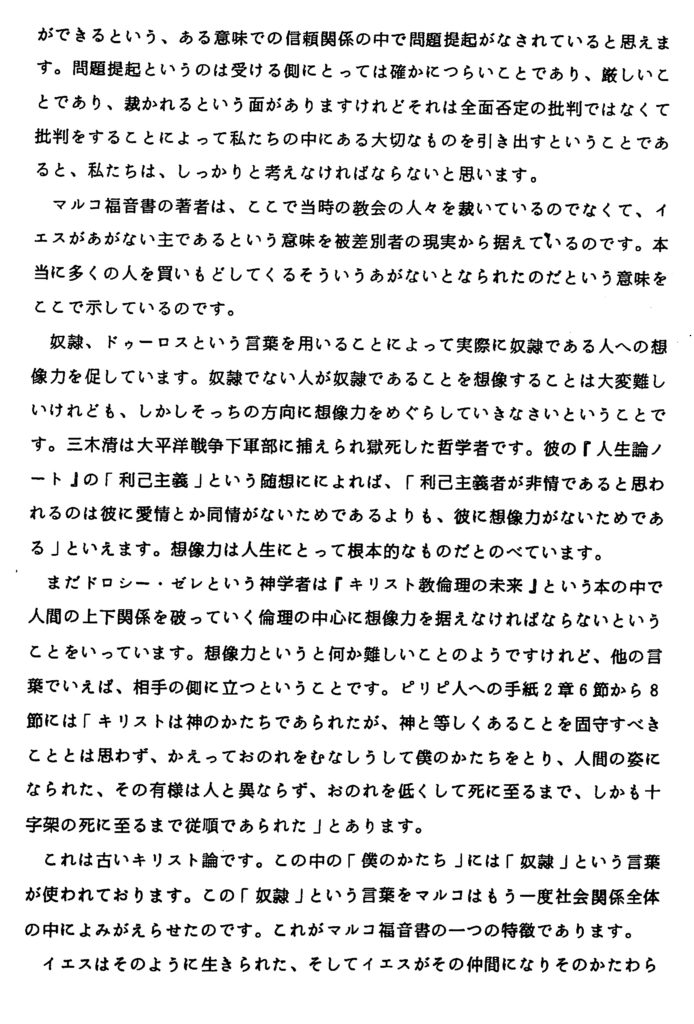 ができるという、ある意味での信頼関係の中で問題提起がなされていると思えま
す。問題提起というのは受ける側にとっては確かにつらいことであり、厳しいこ
とであり、裁かれるという面がありますけれどそれは全面否定の批判ではなくて
批判をすることによって私たちの中にある大切なものを引き出すということであ
ると、私たちは、しっかりと考えなければならないと思います。
マルコ福音書の著者は、ここで当時の教会の人々を裁いているのでなくて、イ
エスがあがない主であるという意味を被差別者の現実から据えているのです。本
当に多くの人を買いもどしてくるそういうあがないとなられたのだという意味を
ここで示しているのです。
奴隷、ドゥーロスという言葉を用いることによって実際に奴隷である人への想
像力を促しています。奴隷でない人が奴隷であることを想像することは大変難し
いけれども、しかしそっちの方向に想像力をめぐらしていきなさいということで
す。三木清は大平洋戦争下軍部に捕えられ獄死した哲学者です。彼の『人生論ノ
ート』の「利己主義」という随想にによれば、「利己主義者が非情であると思わ
れるのは彼に愛情とか同情がないためであるよりも、彼に想像力がないためであ
る」といえます。想像力は人生にとって根本的なものだとのべています。
まだドロシー・ゼレという神学者は『キリスト教倫理の未来』という本の中で
人間の上下関係を破っていく倫理の中心に想像力を据えなければならないという
ことをいっています。想像力というと何か難しいことのようですけれど、他の言
葉でいえば、相手の側に立つということです。ピリピ人への手紙2章6節から8
節には「キリストは神のかたちであられたが、神と等しくあることを固守すべき
こととは思わず、かえっておのれをむなしうして僕のかたちをとり、人間の姿に
なられた、その有様は人と異ならず、おのれを低くして死に至るまで、しかも十
字架の死に至るまで従順であられた」とあります。
これは古いキリスト論です。この中の「僕のかたち」には「奴隷」という言葉
が使われております。この「奴隷」という言葉をマルコはもう一度社会関係全体
の中によみがえらせたのです。これがマルコ福音書の一つの特徴であります。
イエスはそのように生きられた、そしてイエスがその仲間になりそのかたわら